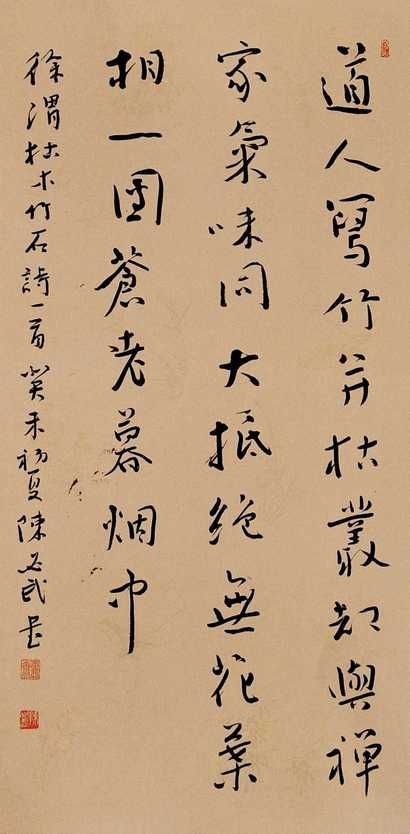 道人寫竹并枯叢却與禪
家氣味同大抵絶無花葉
相一團蒼老暮烟中
徐渭枯木竹石詩一首癸未初夏陳必武書